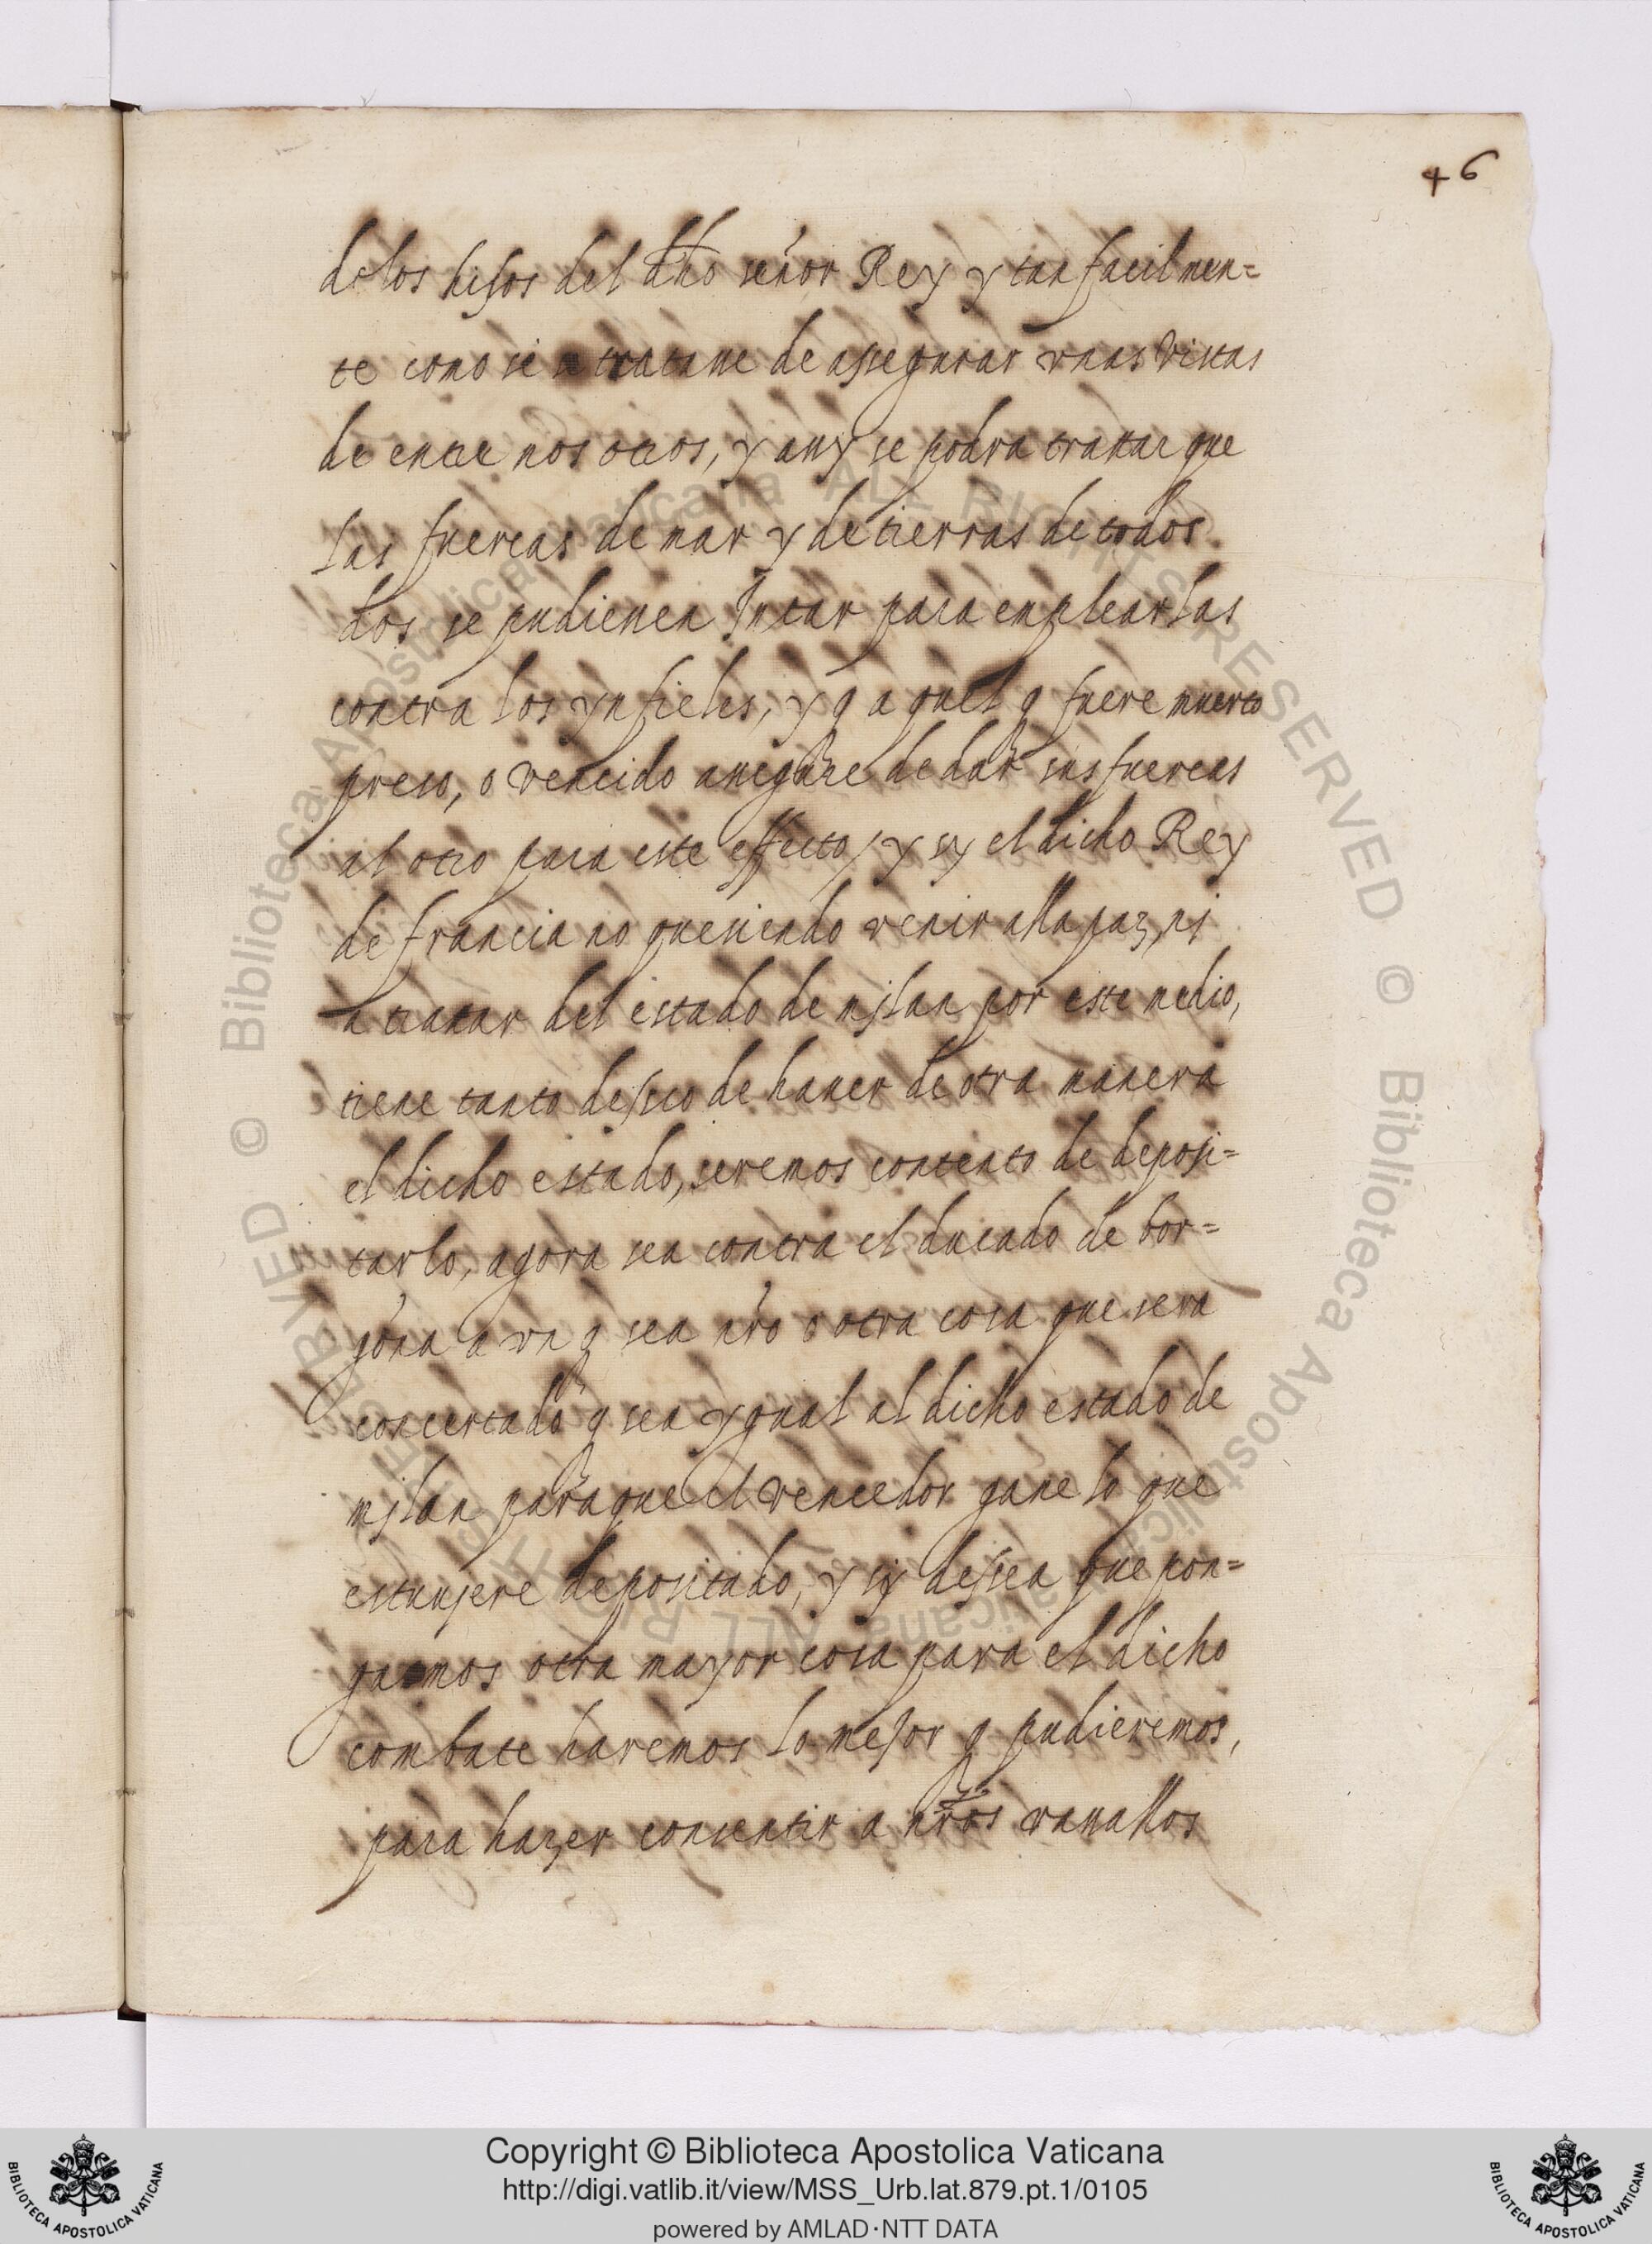 46
de los hijos del dho señor Rey y tan facilmen=
te como si se tratasse de assegurar vnas vistas
de entre nosotros, y assy se podra trattar que
las fuercas de mar y de tierras de todos
dos se pudiessen Jntar para emplearlas
contra los ynfieles, y q̃ aquel q̃ fuere muerto
preso, o vencido assegure de dar sus fuercas
al otro para este effecto, y sy el dicho Rey
de francia no quesiendo venir alla paz, ni
a trattar del estado de mjlan por este medio,
tiene tanto desseo de hauer de otra manera
el dicho estado, seremos contento de deposi=
tarlo, agora sea contra el ducado de bor=
goña avnq̃ sea nr̃o o otra cosa que sera
concertado q̃ sea ygual al dicho estado de
mjlan para que el vencedor gane lo que
estuujere depositado, y sy dessea que pon=
gamos otra mayor cosa para el dicho
combate haremos lo mejor q̃ pudieremos,
para hazer consentir a nr̃os vassallos
Copyright © Biblioteca Apostolica Vaticana
http://digi.vatlib.it/view/MSS_Urb.lat.879.pt.1/0105
powered by AMLAD·NTT DATA